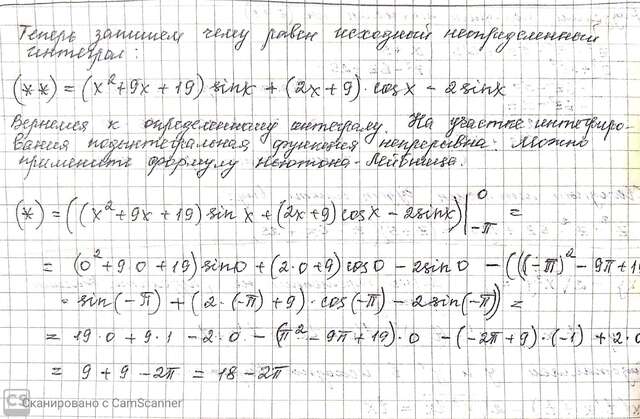 Теперь запишем чему равен исходный неопределенный
интеграл:
(**) = (x²+9x+19) sinx + (2x+9)·cosx - 2sinx
Вернемся к определенному интегралу. На участке интегриро-
вания подынтегральная функция непрерывна. Можно
применить формулу Ньютона-Лейбница.
(*) = ((x²+9x+19) sin x + (2x+9) cosx - 2sinx) |₋π⁰ =
= (0²+9·0+19) sin0 + (2·0+9) cos0 - 2sin0 - (((-π)² - 9π+19
· sin(-π) + (2·(-π)+9)·cos(-π) - 2sin(-π)) =
= 19·0 + 9·1 - 2·0 - (π² - 9π+19)·0 - (-2π+9)·(-1) + 2·0
= 9+9-2π = 18-2π
CS Сканировано с CamScanner